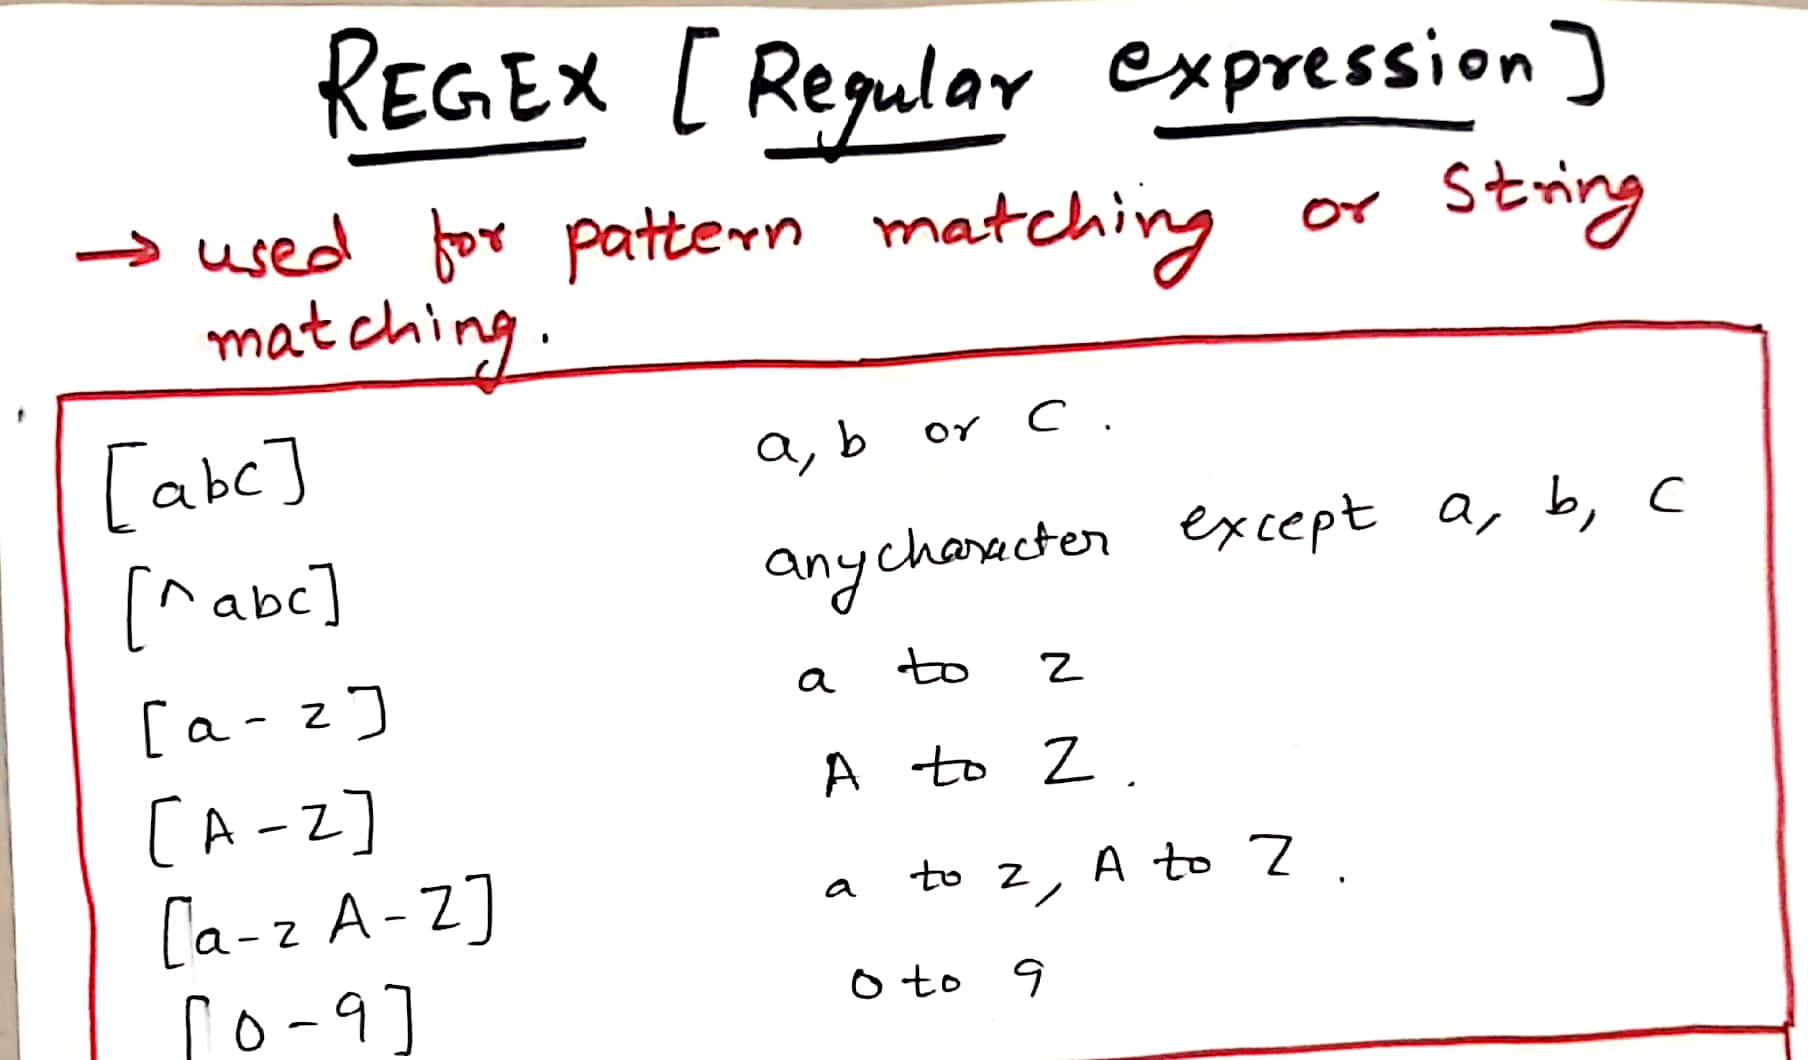 REGEX [Regular expression]
→ used for pattern matching or String
matching.
[abc] a, b or c.
[^abc] any character except a, b, c
[a-z] a to z
[A-Z] A to Z.
[a-z A-Z] a to z, A to Z.
[0-9] 0 to 9